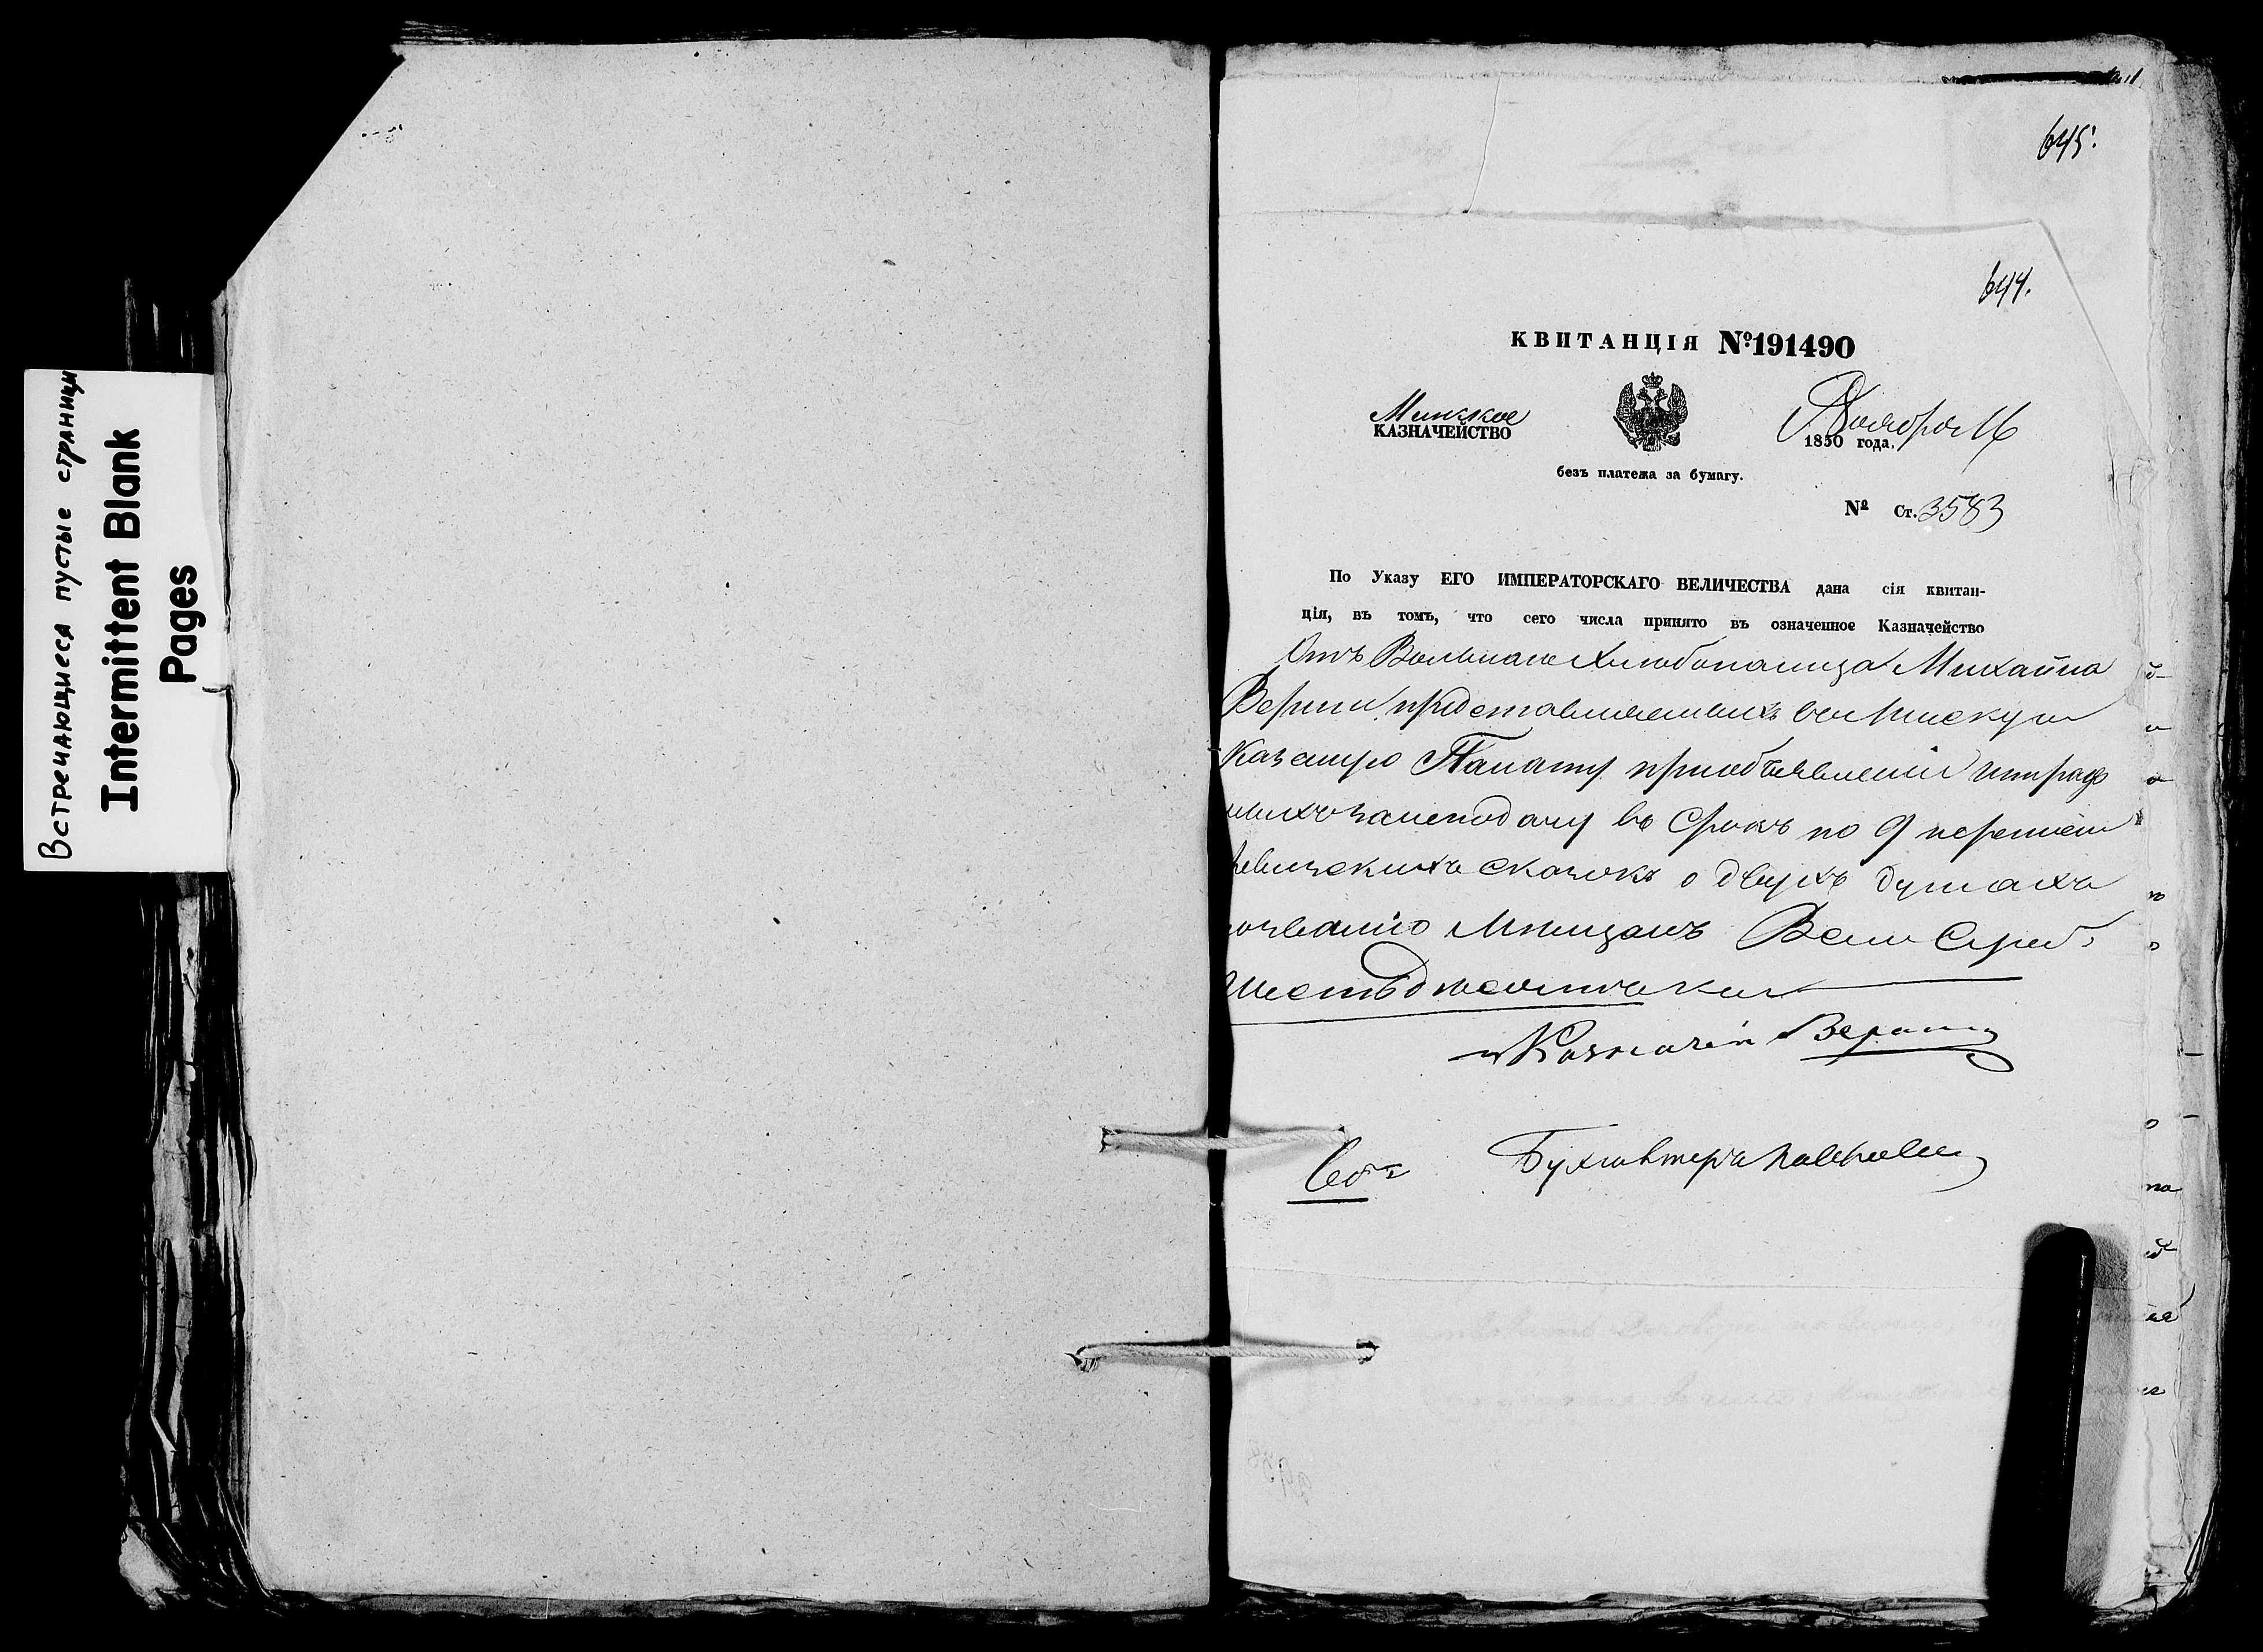 Встречающиеся пустые страницы
Intermittent Blank
Pages
645.
644.
КВИТАНЦІЯ №191490
Минское
КАЗНАЧЕЙСТВО
Ноября 16
1850 года.
безъ платежа за бумагу.
№ Ст. 3583
По Указу ЕГО ИМПЕРАТОРСКАГО ВЕЛИЧЕСТВА дана сія квитан-
ція, въ томъ, что сего числа принято въ означенное Казначейство
Отъ Вольнаго Хлебопашца Михайла
въ Минскую
Казенную Палату при объявленіи штраф
ныхъ за неподачу въ Срокъ по 9 переписи
Ревизскихъ сказокъ о двухъ душахъ
Мѣщанъ Сереб.
Шестьдесятъ коп
Казначей
Бухгалтеръ